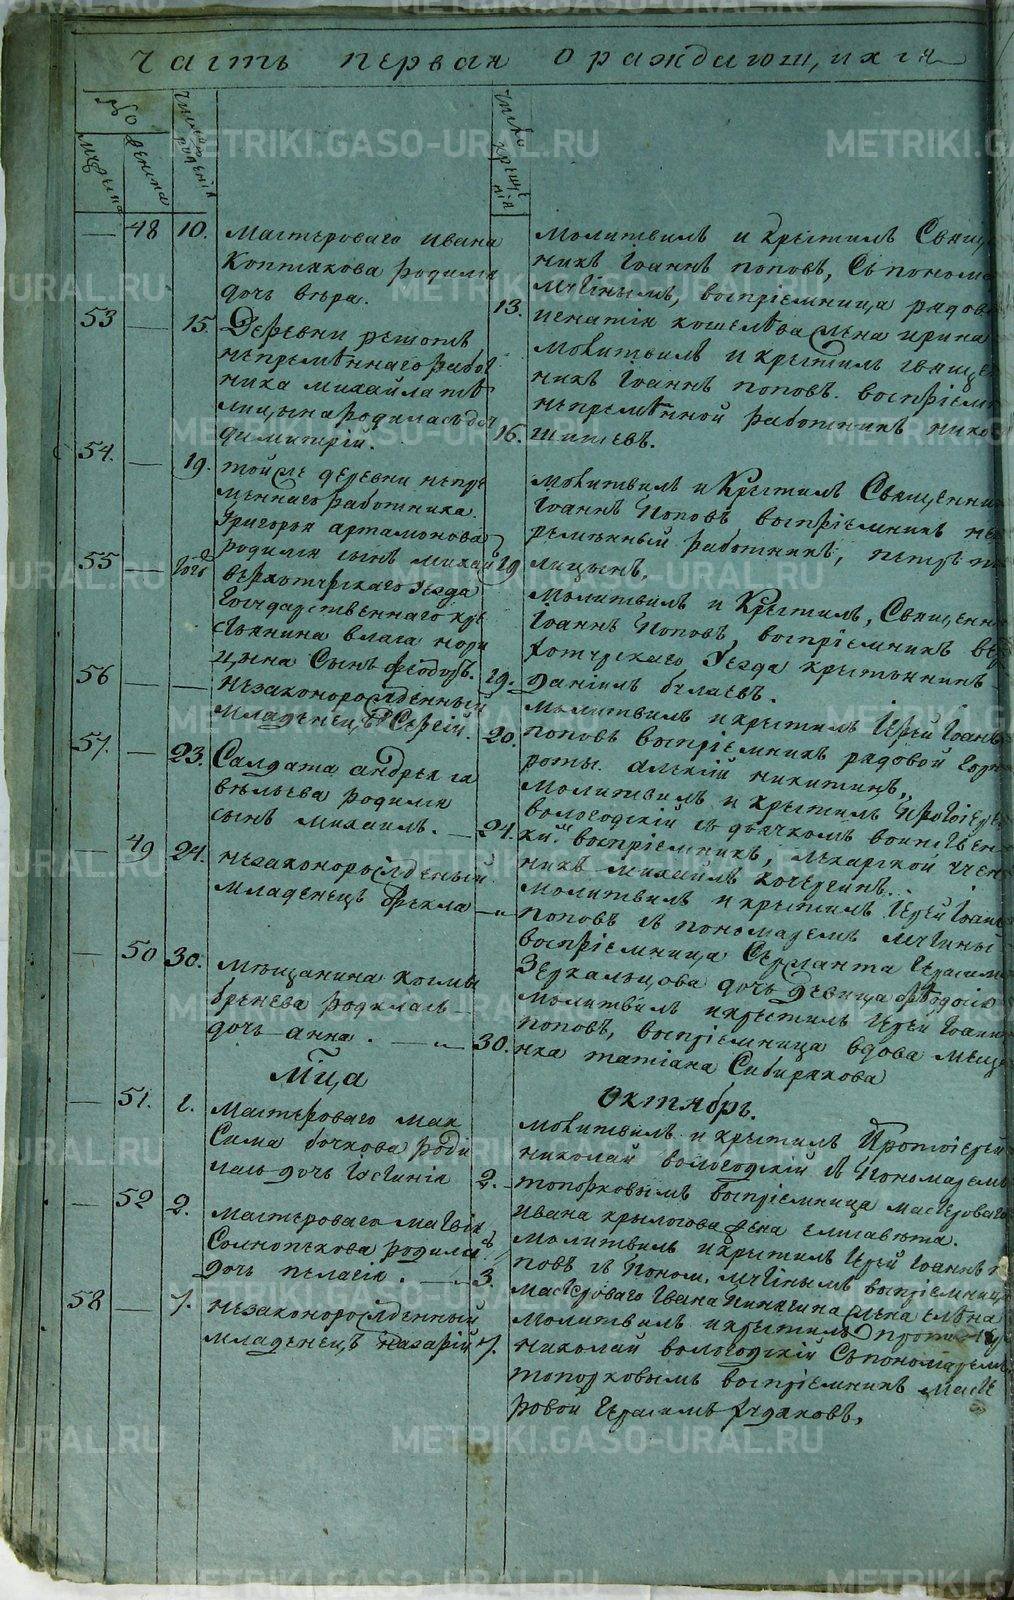 Часть первая о раждающихся
Число рожденія
Число крещенія
мужеска
женска
— 48 10. Мастероваго Ивана
Коптякова родилась
дочь вѣра.
13.
молитвилъ и крестилъ Свяще
никъ Іоаннъ поповъ, съ понома
мѣчинымъ, воспріемница рядова
игнатія кошелева жена ирина
53 — 15. Деревни решотъ
непремѣннаго работ
ника михайла
родилась
димитрій.
16.
молитвилъ и крестилъ священ
никъ Іоаннъ поповъ. воспріемн
непремѣнной работникъ
54. — 19. той же деревни непре
мѣннаго работника
Григорья артамонова
родился сынъ михаи
19
молитвилъ и Крестилъ Священник
Іоаннъ Поповъ воспріемникъ неп
ремѣнный работникъ, петръ
55 — того
верхотурскаго уезда
Государственнаго кре
стьянина власа
Сынъ феодоръ.
19.
молитвилъ и Крестилъ, Священн
Іоаннъ Поповъ, воспріемникъ вер
хотурскаго уезда крестьянинъ
даніилъ
56 — — незаконорожденный
младенецъ Сергій.
20.
молитвилъ икрестилъ Іерей Іоаннъ
поповъ воспріемникъ рядовой
роты. алексій никитинъ.
57. — 23. Салдата андрея са
вельева родился
сынъ михаилъ. —
24.
молитвилъ и крестилъ Протоіере
вологодскій съ дьячкомъ
воспріемникъ, лекарской учен
никъ михайлъ кочергинъ.
— 49 24. незаконорожденый
младенецъ Фекла — „
молитвилъ и крестилъ Іерей Іоанн
поповъ съ пономаремъ мѣчины
воспріемница Сержанта Герасима
Зеркальцова дочь девица Феодосія
— 50 30. мѣщанина козмы
бренева родилась
дочь анна. — „ — 30.
молитвилъ икрестилъ Іерей Іоанн
поповъ, воспріемница вдова мещ
нка татіана Сибирякова
Мца Октябрь.
— 51. 1. мастероваго мак
сима бочкова роди
лась дочь Іустинія
2.
молитвилъ и крестилъ Протоіерей
николай вологодскій съ Пономаремъ
топорковымъ воспріемница мастероваго
ивана крылосова жена елисавета.
— 52 2. мастероваго матвія
Солнопекова родилась
дочь пелагія. — 3.
молитвилъ икрестилъ Іерей Іоаннъ п
повъ съ Поном. мѣчинымъ воспріемница
мастероваго Ивана Пинягина жена елена
58 — 7. незаконорожденный
младенецъ назарій 7.
молитвилъ икрестилъ
николай вологодскій Съ пономаремъ
топорковымъ воспріемникъ масте
ровой Герасимъ худяковъ,
METRIKI.GASO-URAL.RU